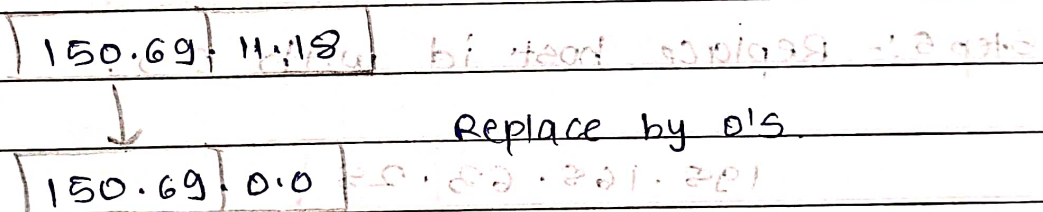 150.69. 11.18
Replace by 0's.
150.69. 0.0